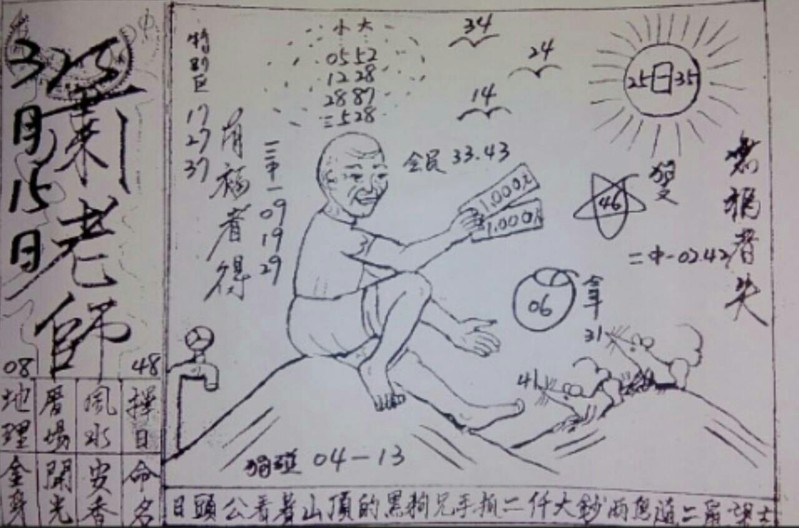 3月15日
蕭老師
08
48
擇日 命名
風水 安香
厝場 開光
地理 金身
特別区
17
27
37
小 大
05 52
12 28
28 87
三5 28
有福者得
三中一
09
19
29
34
24
14
25 日 35
全民 33.43
1,000元
1,000元
46
雙
二中一02.42
06
拿
31
41
04-13
日頭公看著山頂的黑狗兄手拍二仟大鈔兩